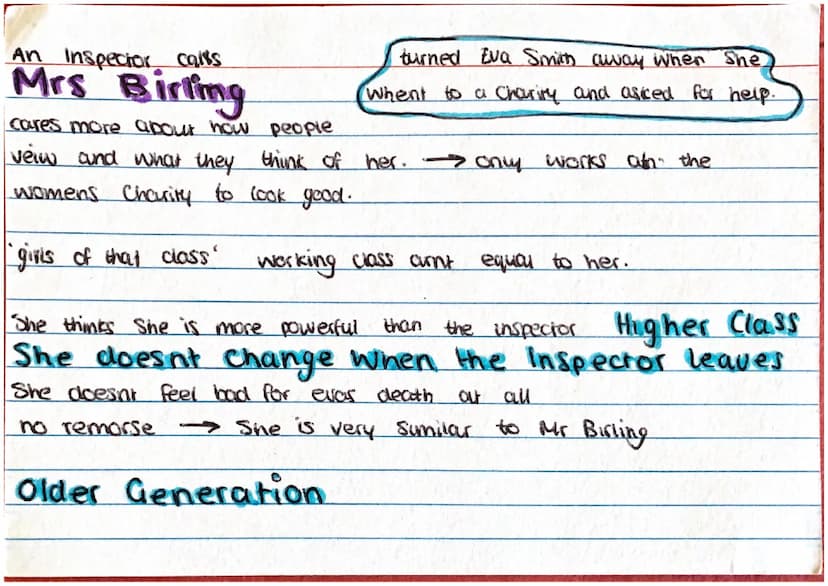 An Inspector calls
Mrs Birling
turned Eva Smith away when she
whent to a charity and asked for help.
cares more about how people
veiw and what they think of her. → only works at the
womens charity to look good.
'girls of that class' working class arnt equal to her.
She thinks she is more powerful than the inspector Higher Class
She doesnt change when the Inspector leaves
She doesnt feel bad for evas death at all
no remorse → She is very similar to Mr Birling
Older Generation